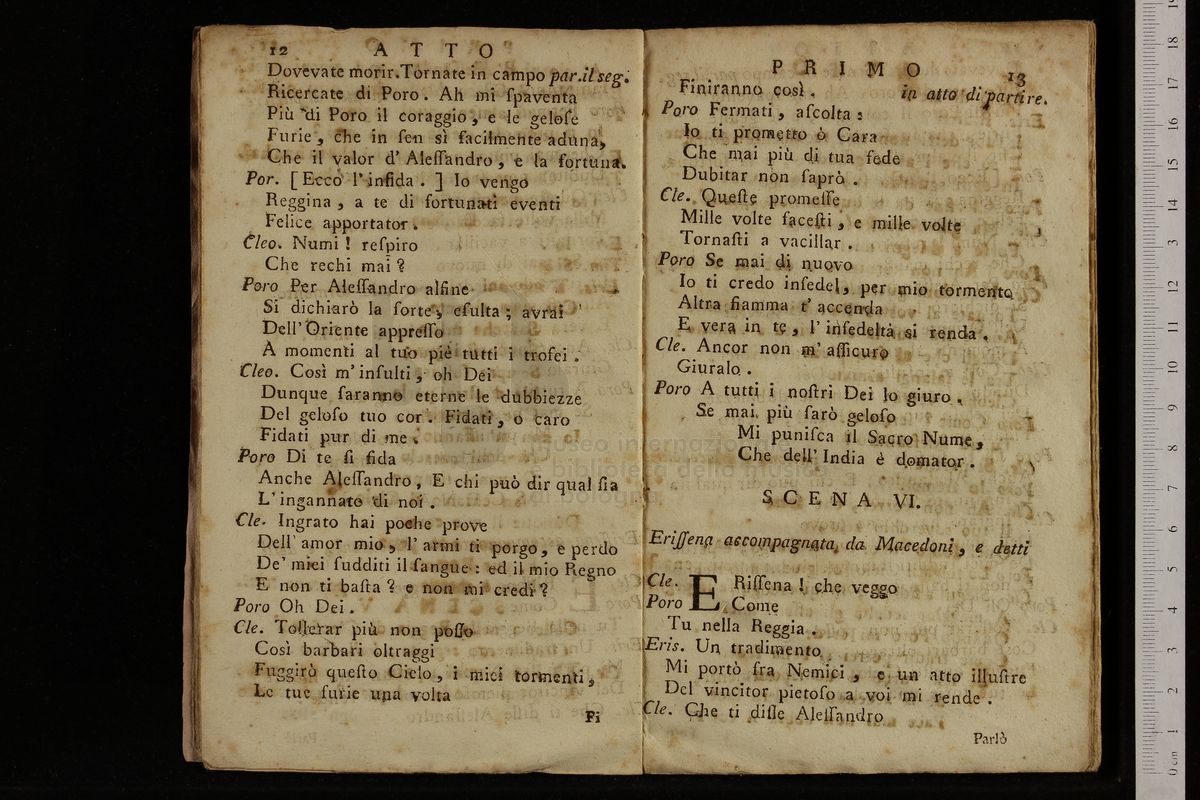 12 ATTO
Dovevate morir. Tornate in campo par. il seg.
Ricercate di Poro. Ah mi ſpaventa
Più di Poro il coraggio, e le geloſe
Furie, che in ſen sì facilmente aduna,
Che il valor d' Aleſſandro, e la fortuna.
Por. [Ecco l'infida.] Io vengo
Reggina, a te di fortunati eventi
Felice apportator.
Cleo. Numi! reſpiro
Che rechi mai?
Poro Per Aleſſandro alfine
Si dichiarò la ſorte, eſulta; avrai
Dell'Oriente appreſſo
A momenti al tuo piè tutti i trofei.
Cleo. Così m'inſulti, oh Dei
Dunque ſaranno eterne le dubbiezze
Del geloſo tuo cor. Fidati, o caro
Fidati pur di me.
Poro Di te ſi fida
Anche Aleſſandro, E chi può dir qual ſia
L'ingannato di noi.
Cle. Ingrato hai poche prove
Dell' amor mio, l'armi ti porgo, e perdo
De' miei ſudditi il ſangue: ed il mio Regno
E non ti baſta? e non mi credi?
Poro Oh Dei.
Cle. Tollerar più non poſſo
Così barbari oltraggi
Fuggirò queſto Cielo, i miei tormenti,
Le tue furie una volta
Fi
PRIMO 13
Finiranno così. in atto di partire.
Poro Fermati, aſcolta:
Io ti prometto ò Cara
Che mai più di tua fede
Dubitar non ſaprò.
Cle. Queſte promeſſe
Mille volte faceſti, e mille volte
Tornaſti a vacillar.
Poro Se mai di nuovo
Io ti credo infedel, per mio tormento
Altra fiamma t' accenda
E vera in te, l'infedeltà si renda.
Cle. Ancor non m' aſſicuro
Giuralo.
Poro A tutti i noſtri Dei lo giuro.
Se mai più ſarò geloſo
Mi puniſca il Sacro Nume,
Che dell'India è domator.
SCENA VI.
Eriſſena accompagnata da Macedoni, e detti
Cle. ERiſſena! che veggo
Poro Come
Tu nella Reggia.
Eris. Un tradimento
Mi portò fra Nemici, e un atto illuſtre
Del vincitor pietoſo a voi mi rende.
Cle. Che ti diſſe Aleſſandro
Parlò